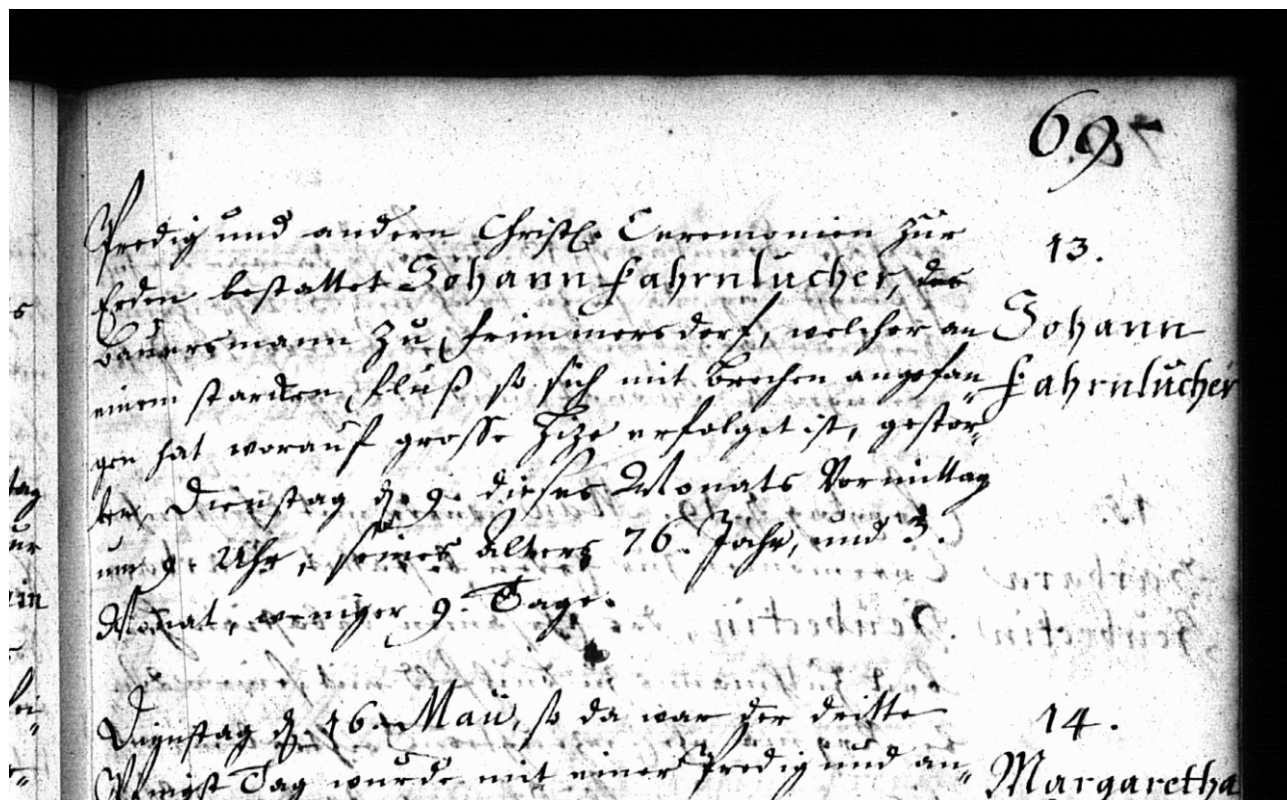 69
Predig und andern Christl. Ceremonien zur
Erden bestattet Johann Fahrnlucher, der
Bauersmann zu Frimmersdorf, welcher an
einem starcken Fluß so sich mit Brechen angefan„
gen hat worauf grosse Hize erfolget ist, gestor„
ben, Dienstag d. 9. dieses Monats Vormittag
um 9. Uhr, seines Alters 76. Jahr, und 3.
Monat, weniger 9. Tage.
13.
Johann
Fahrnlucher
Dienstag d. 16. Maii, so da war der dritte
Pfingst Tag wurde mit einer Predig und an„
14.
Margaretha